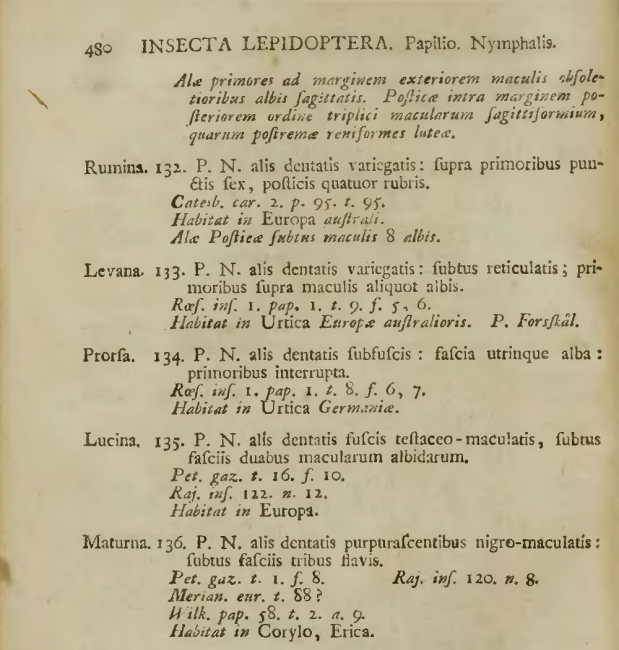 480 INSECTA LEPIDOPTERA. Papilio. Nymphalis.
Alæ primores ad marginem exteriorem maculis obſole-
tioribus albis ſagittatis. Poſticæ intra marginem po-
ſteriorem ordine triplici macularum ſagittiformium,
quarum poſtremæ reniformes luteæ.
Rumina. 132. P. N. alis dentatis variegatis: ſupra primoribus pun-
ctis ſex, poſticis quatuor rubris.
Catesb. car. 2. p. 95. t. 95.
Habitat in Europa auſtrali.
Alæ Poſticæ ſubtus maculis 8 albis.
Levana. 133. P. N. alis dentatis variegatis: ſubtus reticulatis; pri-
moribus ſupra maculis aliquot albis.
Rœſ. inſ. 1. pap. 1. t. 9. f. 5, 6.
Habitat in Urtica Europæ auſtralioris. P. Forsſkål.
Prorſa. 134. P. N. alis dentatis ſubfuſcis: faſcia utrinque alba:
primoribus interrupta.
Rœſ. inſ. 1. pap. 1. t. 8. f. 6, 7.
Habitat in Urtica Germaniæ.
Lucina. 135. P. N. alis dentatis fuſcis teſtaceo-maculatis, ſubtus
faſciis duabus macularum albidarum.
Pet. gaz. t. 16. f. 10.
Raj. inſ. 122. n. 12.
Habitat in Europa.
Maturna. 136. P. N. alis dentatis purpuraſcentibus nigro-maculatis:
ſubtus faſciis tribus flavis.
Pet. gaz. t. 1. f. 8. Raj. inſ. 120. n. 8.
Merian. eur. t. 88?
Wilk. pap. 58. t. 2. a. 9.
Habitat in Corylo, Erica.